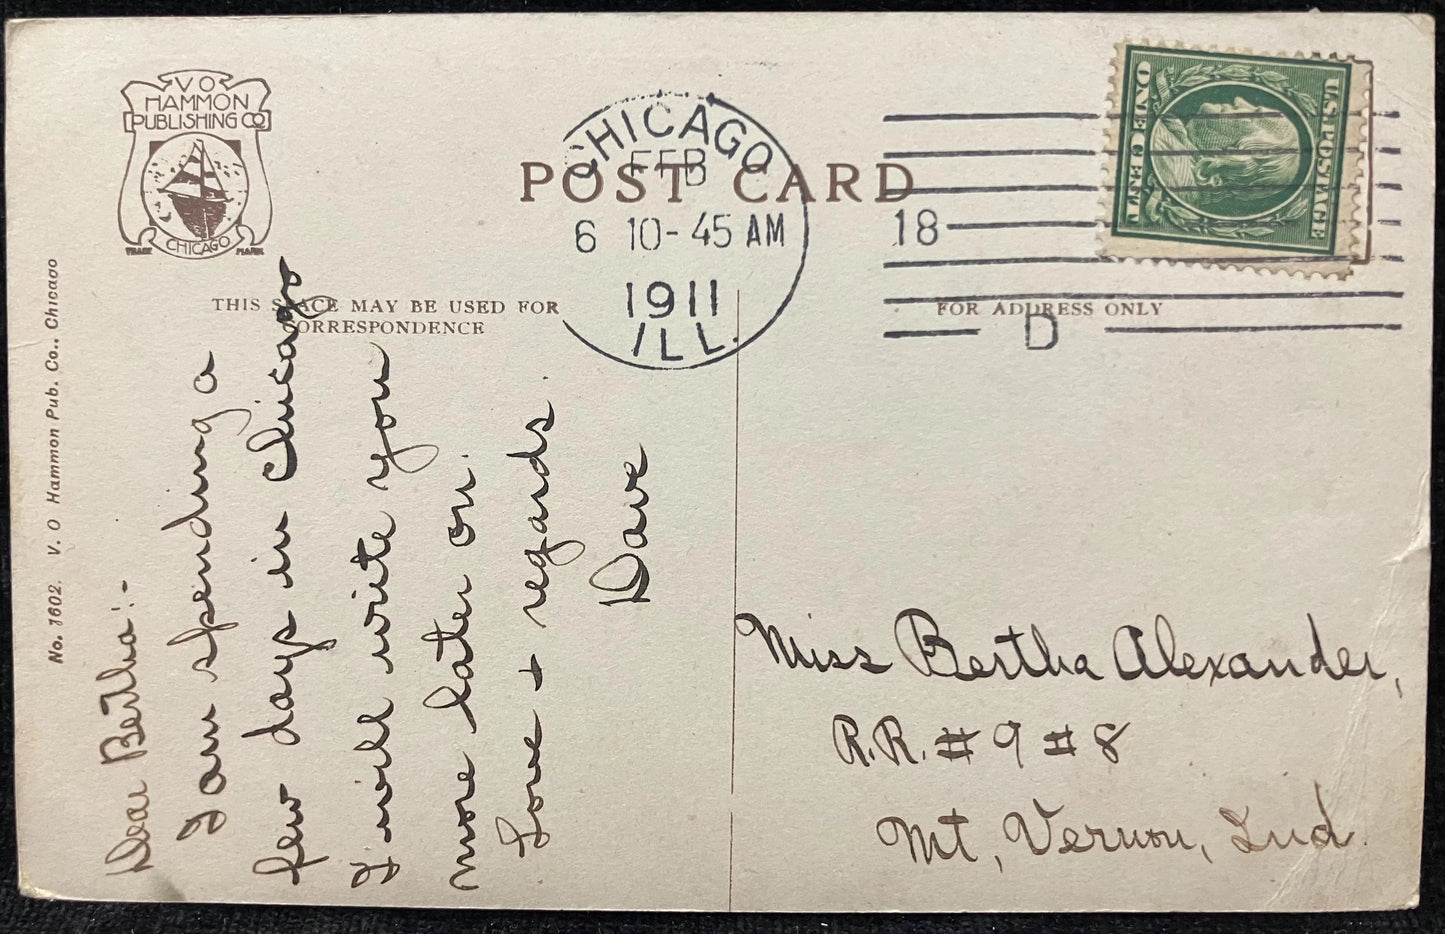 V O
HAMMON
PUBLISHING CO
CHICAGO
TRADE MARK
No. 1602. V. O Hammon Pub. Co., Chicago
POST CARD
THIS SPACE MAY BE USED FOR
CORRESPONDENCE
FOR ADDRESS ONLY
CHICAGO
FEB
6 10-45 AM
1911
ILL.
18
D
U.S. POSTAGE
ONE CENT
Dear Bertha:-
I am spending a
few days in Chicago
I will write you
more later on.
Love + regards.
Dave
Miss Bertha Alexander,
R.R. # 9 # 8
Mt, Vernon, Ind.